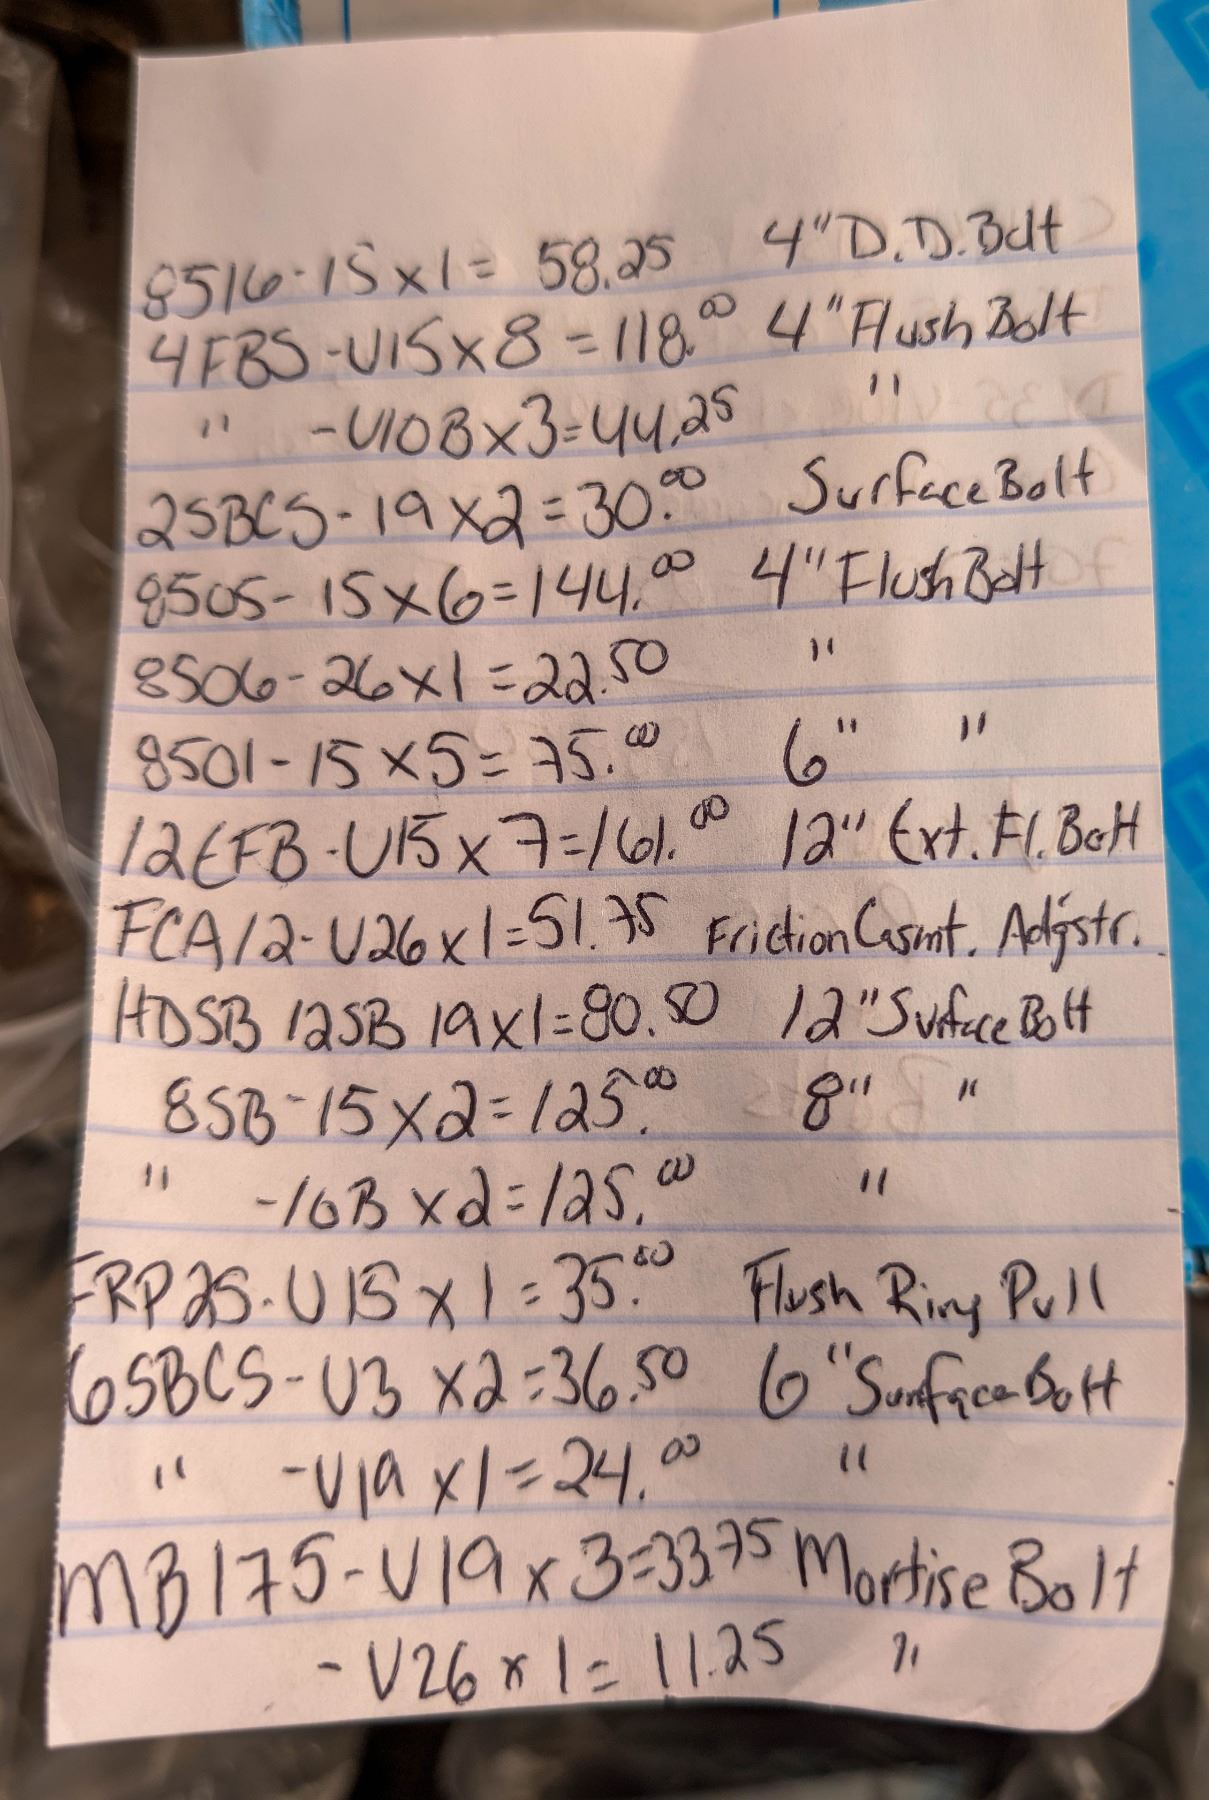 8516-15 x 1 = 58.25 4" D.D. Bolt
4FBS-U15 x 8 = 118.00 4" Flush Bolt
" -U10B x 3 = 44.25 "
2SBCS-19 x 2 = 30.00 Surface Bolt
8505-15 x 6 = 144.00 4" Flush Bolt
8506-26 x 1 = 22.50 "
8501-15 x 5 = 75.00 6" "
12EFB-U15 x 7 = 161.00 12" Ext. Fl. Bolt
FCA12-U26 x 1 = 51.75 Friction Casmt. Adjstr.
HDSB 12SB 19 x 1 = 80.50 12" Surface Bolt
8SB-15 x 2 = 125.00 8" "
" -10B x 2 = 125.00 "
FRP25-U15 x 1 = 35.00 Flush Ring Pull
6SBCS-U3 x 2 = 36.50 6" Surface Bolt
" -U19 x 1 = 24.00 "
MB175-U19 x 3 = 33.75 Mortise Bolt
-U26 x 1 = 11.25 "